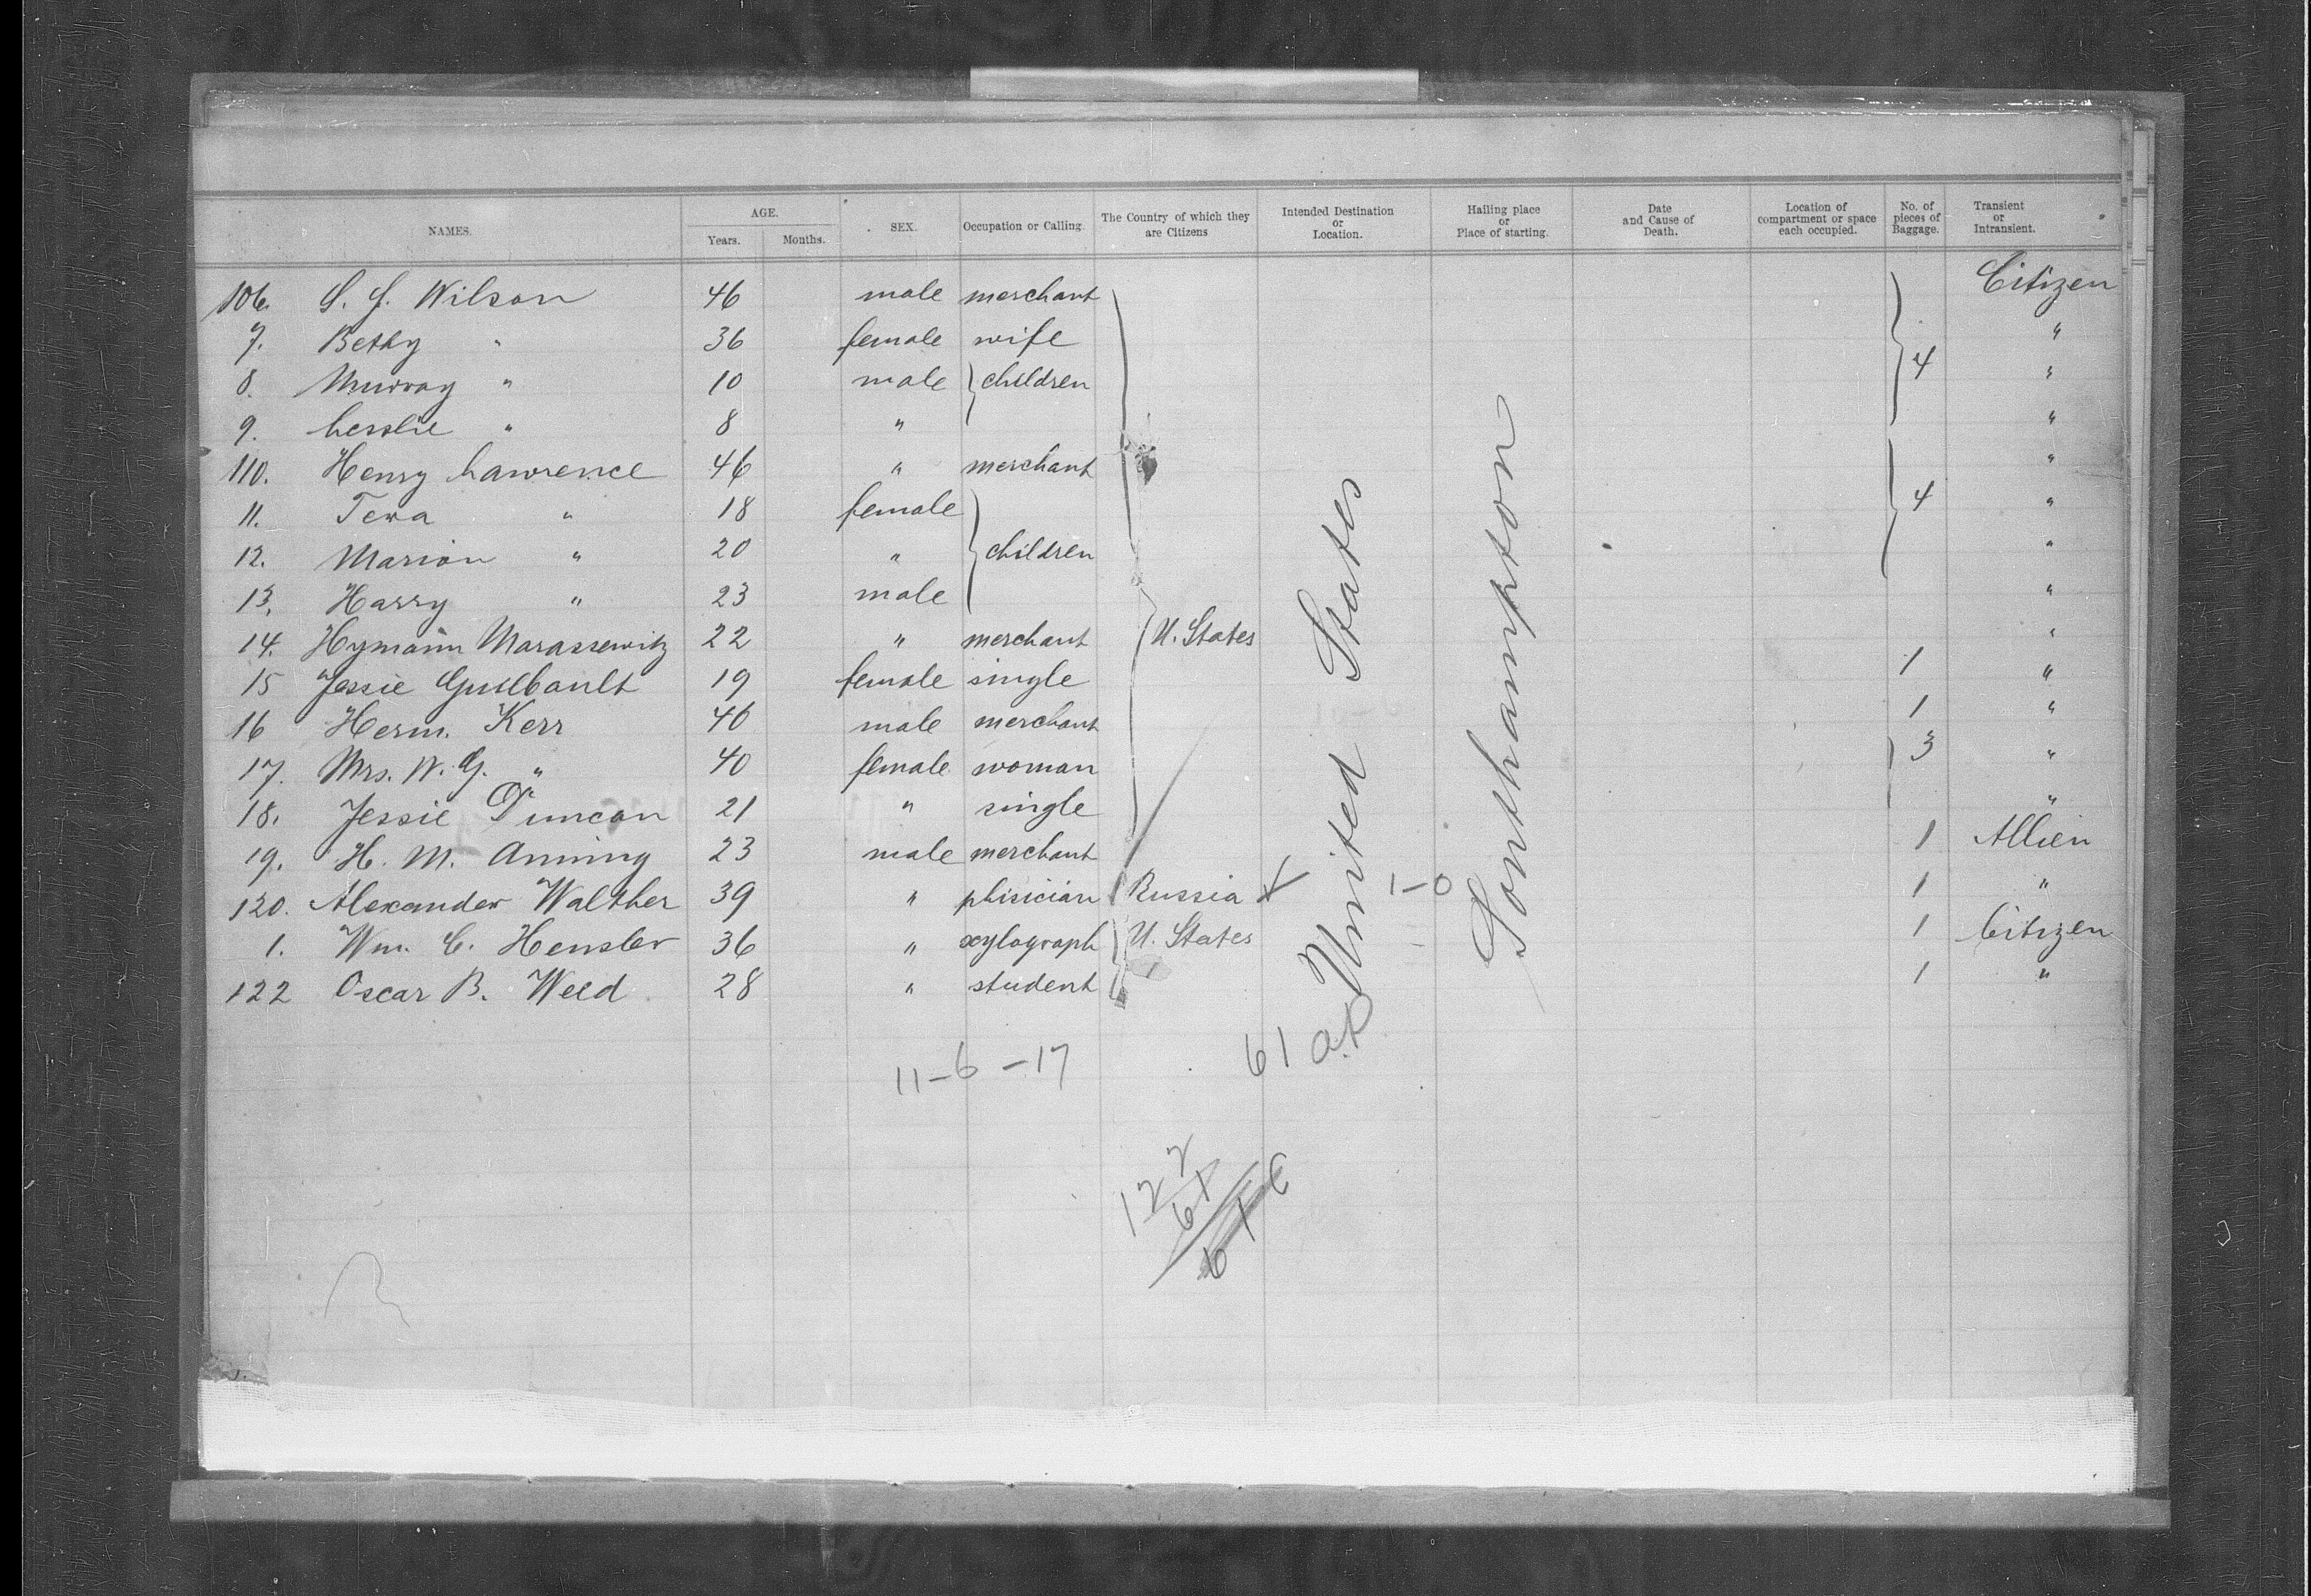 NAMES. AGE. Years. Months. SEX. Occupation or Calling. The Country of which they are Citizens Intended Destination or Location. Hailing place or Place of starting. Date and Cause of Death. Location of compartment or space each occupied. No. of pieces of Baggage. Transient or Intransient.
106. S. J. Wilson 46 male merchant Citizen
7. Bethy " 36 female wife "
8. Murray " 10 male children 4 "
9. Lesslie " 8 " "
110. Henry Lawrence 46 " merchant "
11. " 18 female 4 "
12. Marion " 20 " children "
13. Harry " 23 male "
14. Hymann Marassewitz 22 " merchant U. States "
15 Jessie Guilbault 19 female single 1 "
16 Herm. Kerr 46 male merchant 1 "
17. Mrs. W. G. " 40 female woman 3 "
18. Jessie Duncan 21 " single "
19. H. M. Anning 23 male merchant 1 Allien
120. Alexander Walther 39 " phisician Russia 1-0 1 "
1. Wm. C. Hensler 36 " xylograph U. States 1 Citizen
122 Oscar B. Weed 28 " student 1 "
United States
Southampton
11-6-17
61
122
61
61